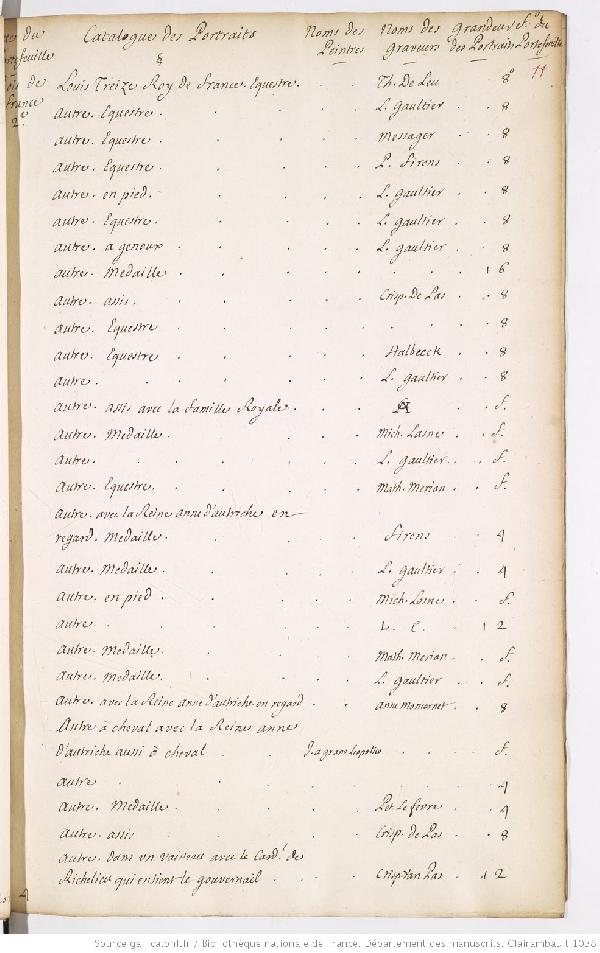 Catalogue des Portraits Noms des Peintres Noms des Graveurs Grandeur des Portraits f.º du Portefeuille
§ 11
Louis Treize Roy de France. Equestre. Th. De Leu 8º
autre. Equestre. L. gaultier 8
autre. Equestre. Messager 8
autre. Equestre. P. firens 8
autre. en pied. L. gaultier 8
autre. Equestre. L. gaultier 8
autre. a genoux L. gaultier 8
autre. Medaille 16
autre. assis. Crisp. De Pas 8
autre. Equestre 8
autre. Equestre Halbeeck 8
autre. L. gaultier 8
autre. assis avec la famille Royale. f.
autre. Medaille. Mich. Lasne f.
autre. L. gaultier f.
autre. Equestre. Math. Merian f.
autre. avec la Reine anne d'autriche en
regard. Medaille. firens 4
autre. Medaille. L. gaultier 4
autre. en pied. Mich. Lasne f.
autre L. C. 12
autre. Medaille. Math. Merian f.
autre. Medaille. L. gaultier f.
autre. avec la Reine anne d'autriche en regard 8
Autre à cheval avec la Reine anne
d'autriche aussi à cheval f.
autre 4
autre. Medaille Pet. Le fevre 4
autre. assis Crisp. de Pas 8
autre. dans un vaisseau avec le Card.l de
Richelieu qui en tient le gouvernail Crisp Van Pas 12
4
Source gallica.bnf.fr / Bibliothèque nationale de France. Département des manuscrits. Clairambault 1038